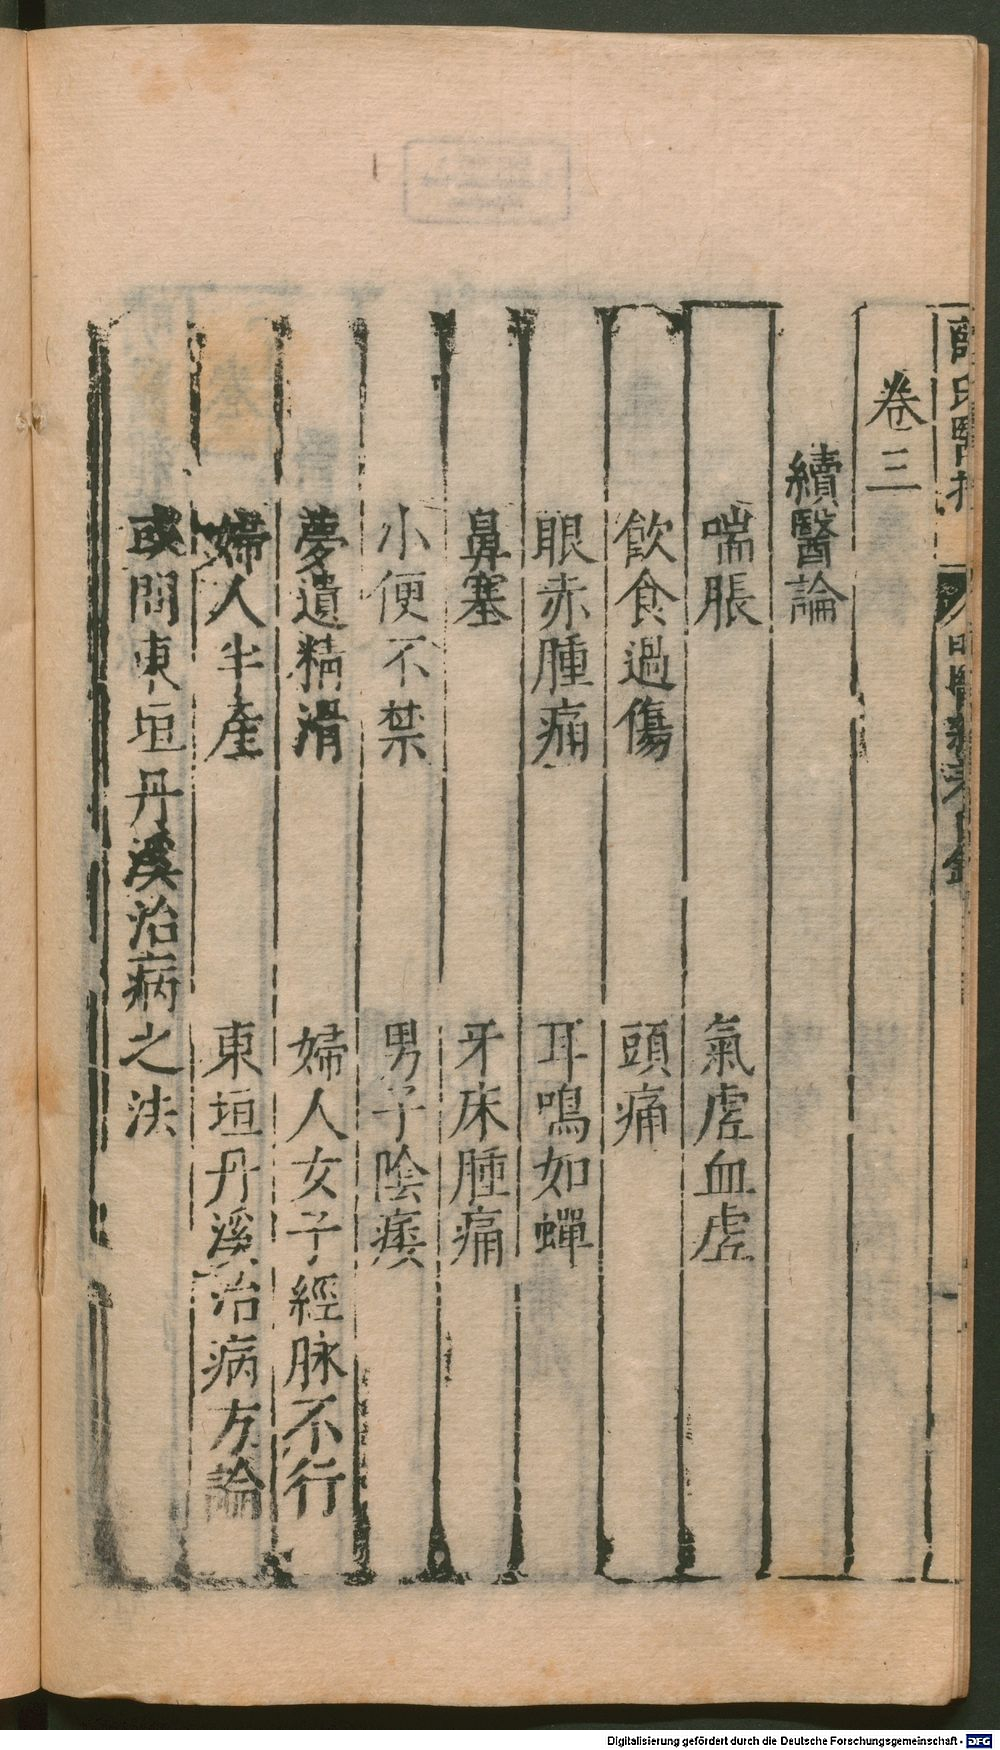 薛氏醫按
明醫雜著目錄
卷三
續醫論
喘脹　氣虛血虛
飲食過傷　頭痛
眼赤腫痛　耳鳴如蟬
鼻塞　牙床腫痛
小便不禁　男子陰痿
夢遺精滑　婦人女子經脉不行
婦人半產　東垣丹溪治病方論
或問東垣丹溪治病之法
Digitalisierung gefördert durch die Deutsche Forschungsgemeinschaft - DFG